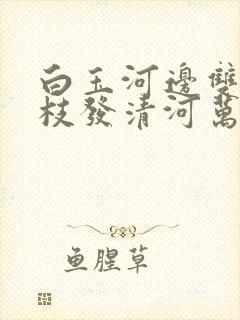 白玉河邊雙
枝發清河萬
鱼腥草